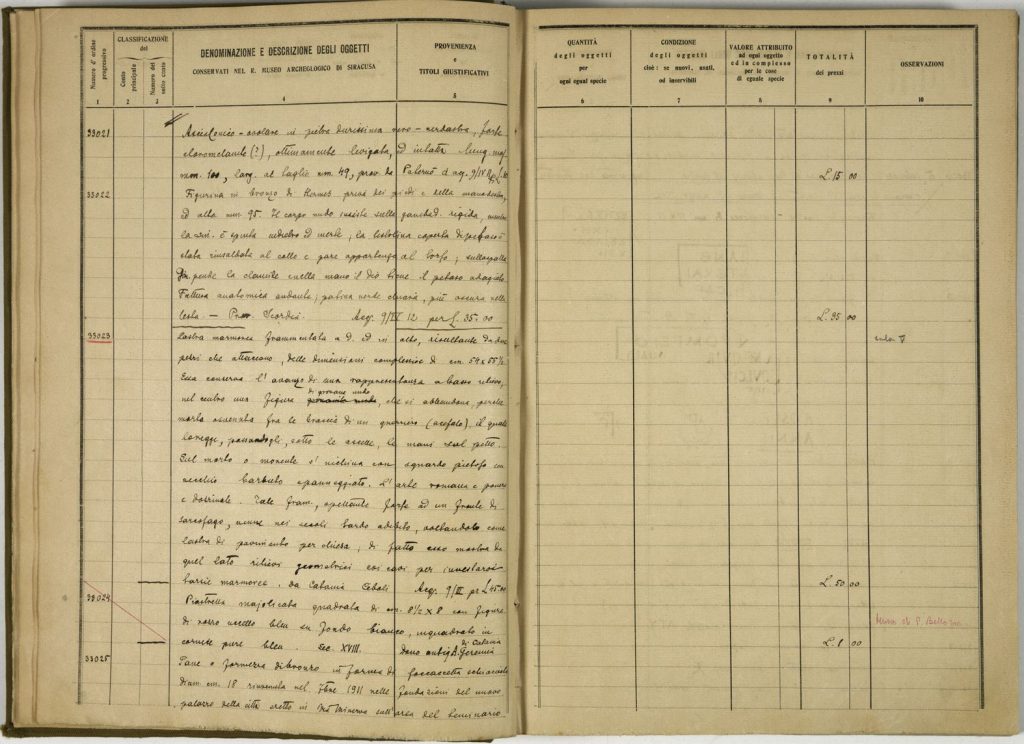 Numero d'ordine progressivo
CLASSIFICAZIONE del
Conto principale
Numero del sotto conto
DENOMINAZIONE E DESCRIZIONE DEGLI OGGETTI
CONSERVATI NEL R. MUSEO ARCHEGLOGICO DI SIRACUSA
PROVENIENZA
e
TITOLI GIUSTIFICATIVI
1 2 3 4 5
33021 in pietra durissima nero-verdastra, forse
cloromelanite (?), ottimamente levigata, ed intatta lung. mas.
mm. 100, larg. al taglio mm. 49, prov. da Palermo d'acq. 9/IV
33022 Figurina in bronzo di Hermes priva dei piedi e della mano destra,
ed alta mm 95. Il corpo nudo insiste sulla gamba d. rigida, mentre
la sin. è spinta indietro ed inerte; la testolina coperta di petaso è
stata rinsaldata al collo e pare appartenga al torso; sulla spalla
sin. pende la clamide e nella mano il dio tiene il petaso adagiato
Fattura anatomica andante; patina verde chiara, più oscura nella
testa — Prov. Scordia. Acq. 9/IV 12 per L. 35.00
33023 Lastra marmorea frammentata a d. ed in alto, risultante da due
pezzi che attaccano, delle dimensioni complessive di cm. 54 x 55 1/2
Essa conserva l'avanzo di una rappresentanza a basso rilievo,
nel centro una figura di giovane nudo, che si abbandona, perché
morta o svenuta fra le braccia di un guerriero (acefalo), il quale
lo regge, passandogli, sotto le ascelle, le mani sul petto.
Sul morto o morente s'inchina con sguardo pietoso un
vecchio barbuto e panneggiato. L'arte romana è povera
e dozzinale. Tale fram., spettante forse ad un fronte di
sarcofago, venne nei secoli tardo adibito, voltandolo come
lastra di pavimento per chiesa, di fatto esso mostra da
quel lato rilievi geometrici così cavi per investarsi
tarsie marmoree. Da Catania Cibali Acq. 9/III per L 45.00
33024 Piastrella majolicata quadrata di cm. 8 1/2 x 8 con figura
di uccello bleu su fondo bianco, inquadrato in
cornice pure bleu. Sec. XVIII. Dono antiq. A. Geremia di Catania
33025 Pane o formessa di bronzo in forma di focaccetta schiacciata
diam. cm. 18 rinvenuta nel 7bre 1911 nelle fondazioni del nuovo
palazzo della città eretto in Via Minerva sull'area del Seminario
QUANTITÀ
degli oggetti
per
ogni egual specie
CONDIZIONE
degli oggetti
cioè: se nuovi, usati,
od inservibili
VALORE ATTRIBUITO
ad ogni oggetto
ed in complesso
per le cose
di eguale specie
TOTALITÀ
dei prezzi
OSSERVAZIONI
6 7 8 9 10
L. 15 00
L. 35 00
L. 50 00
L. 1 00